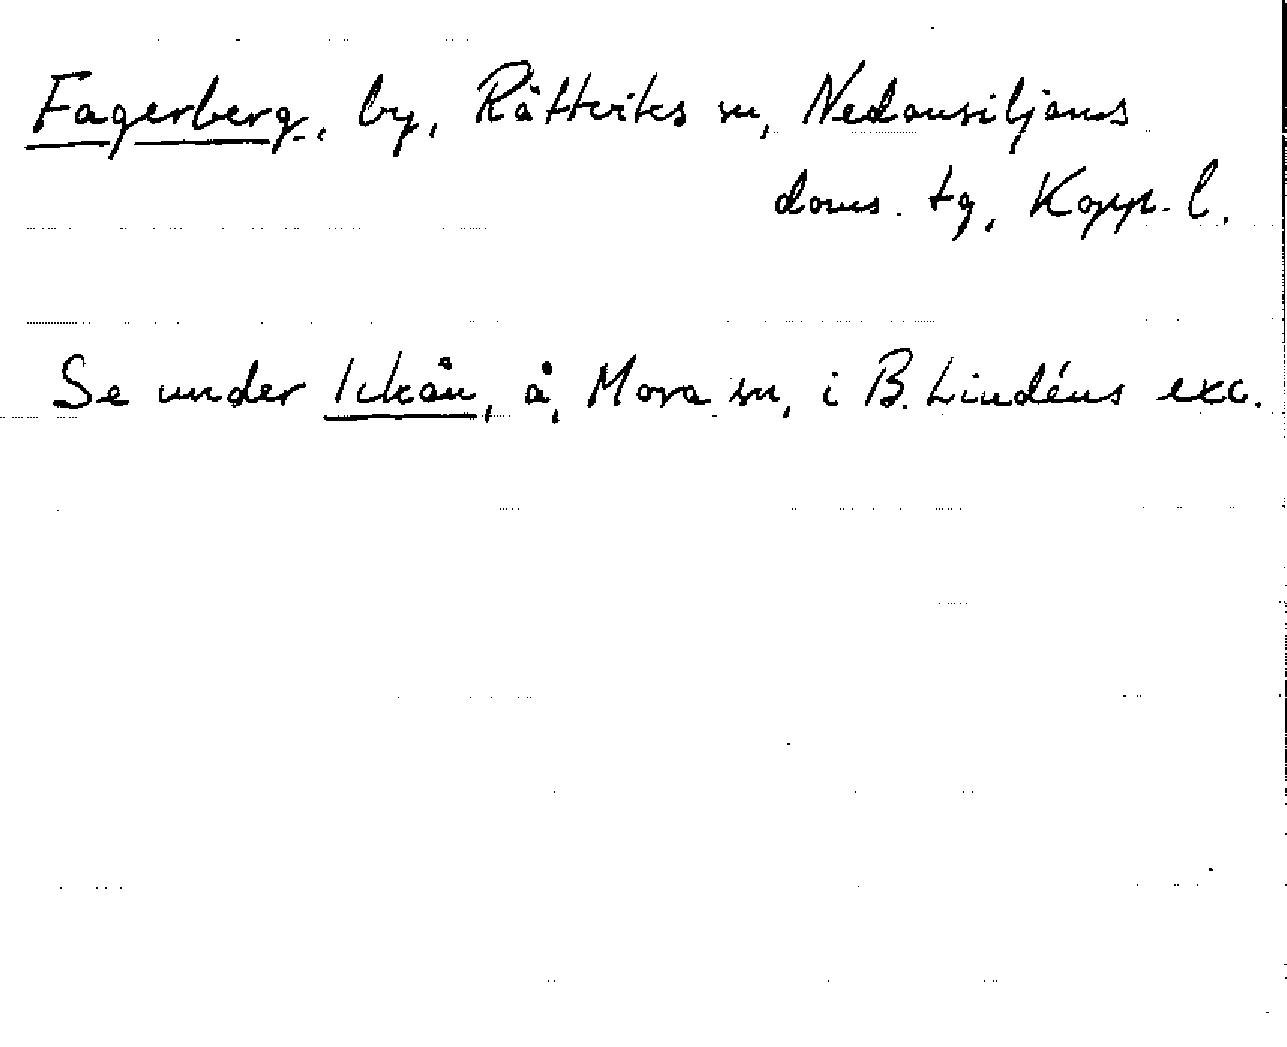 Fagerberg, by, Rättviks sn, Nedansiljans
doms. tg, Kopp. l.
Se under Ickån, å, Mora sn, i B. Lindéns exc.